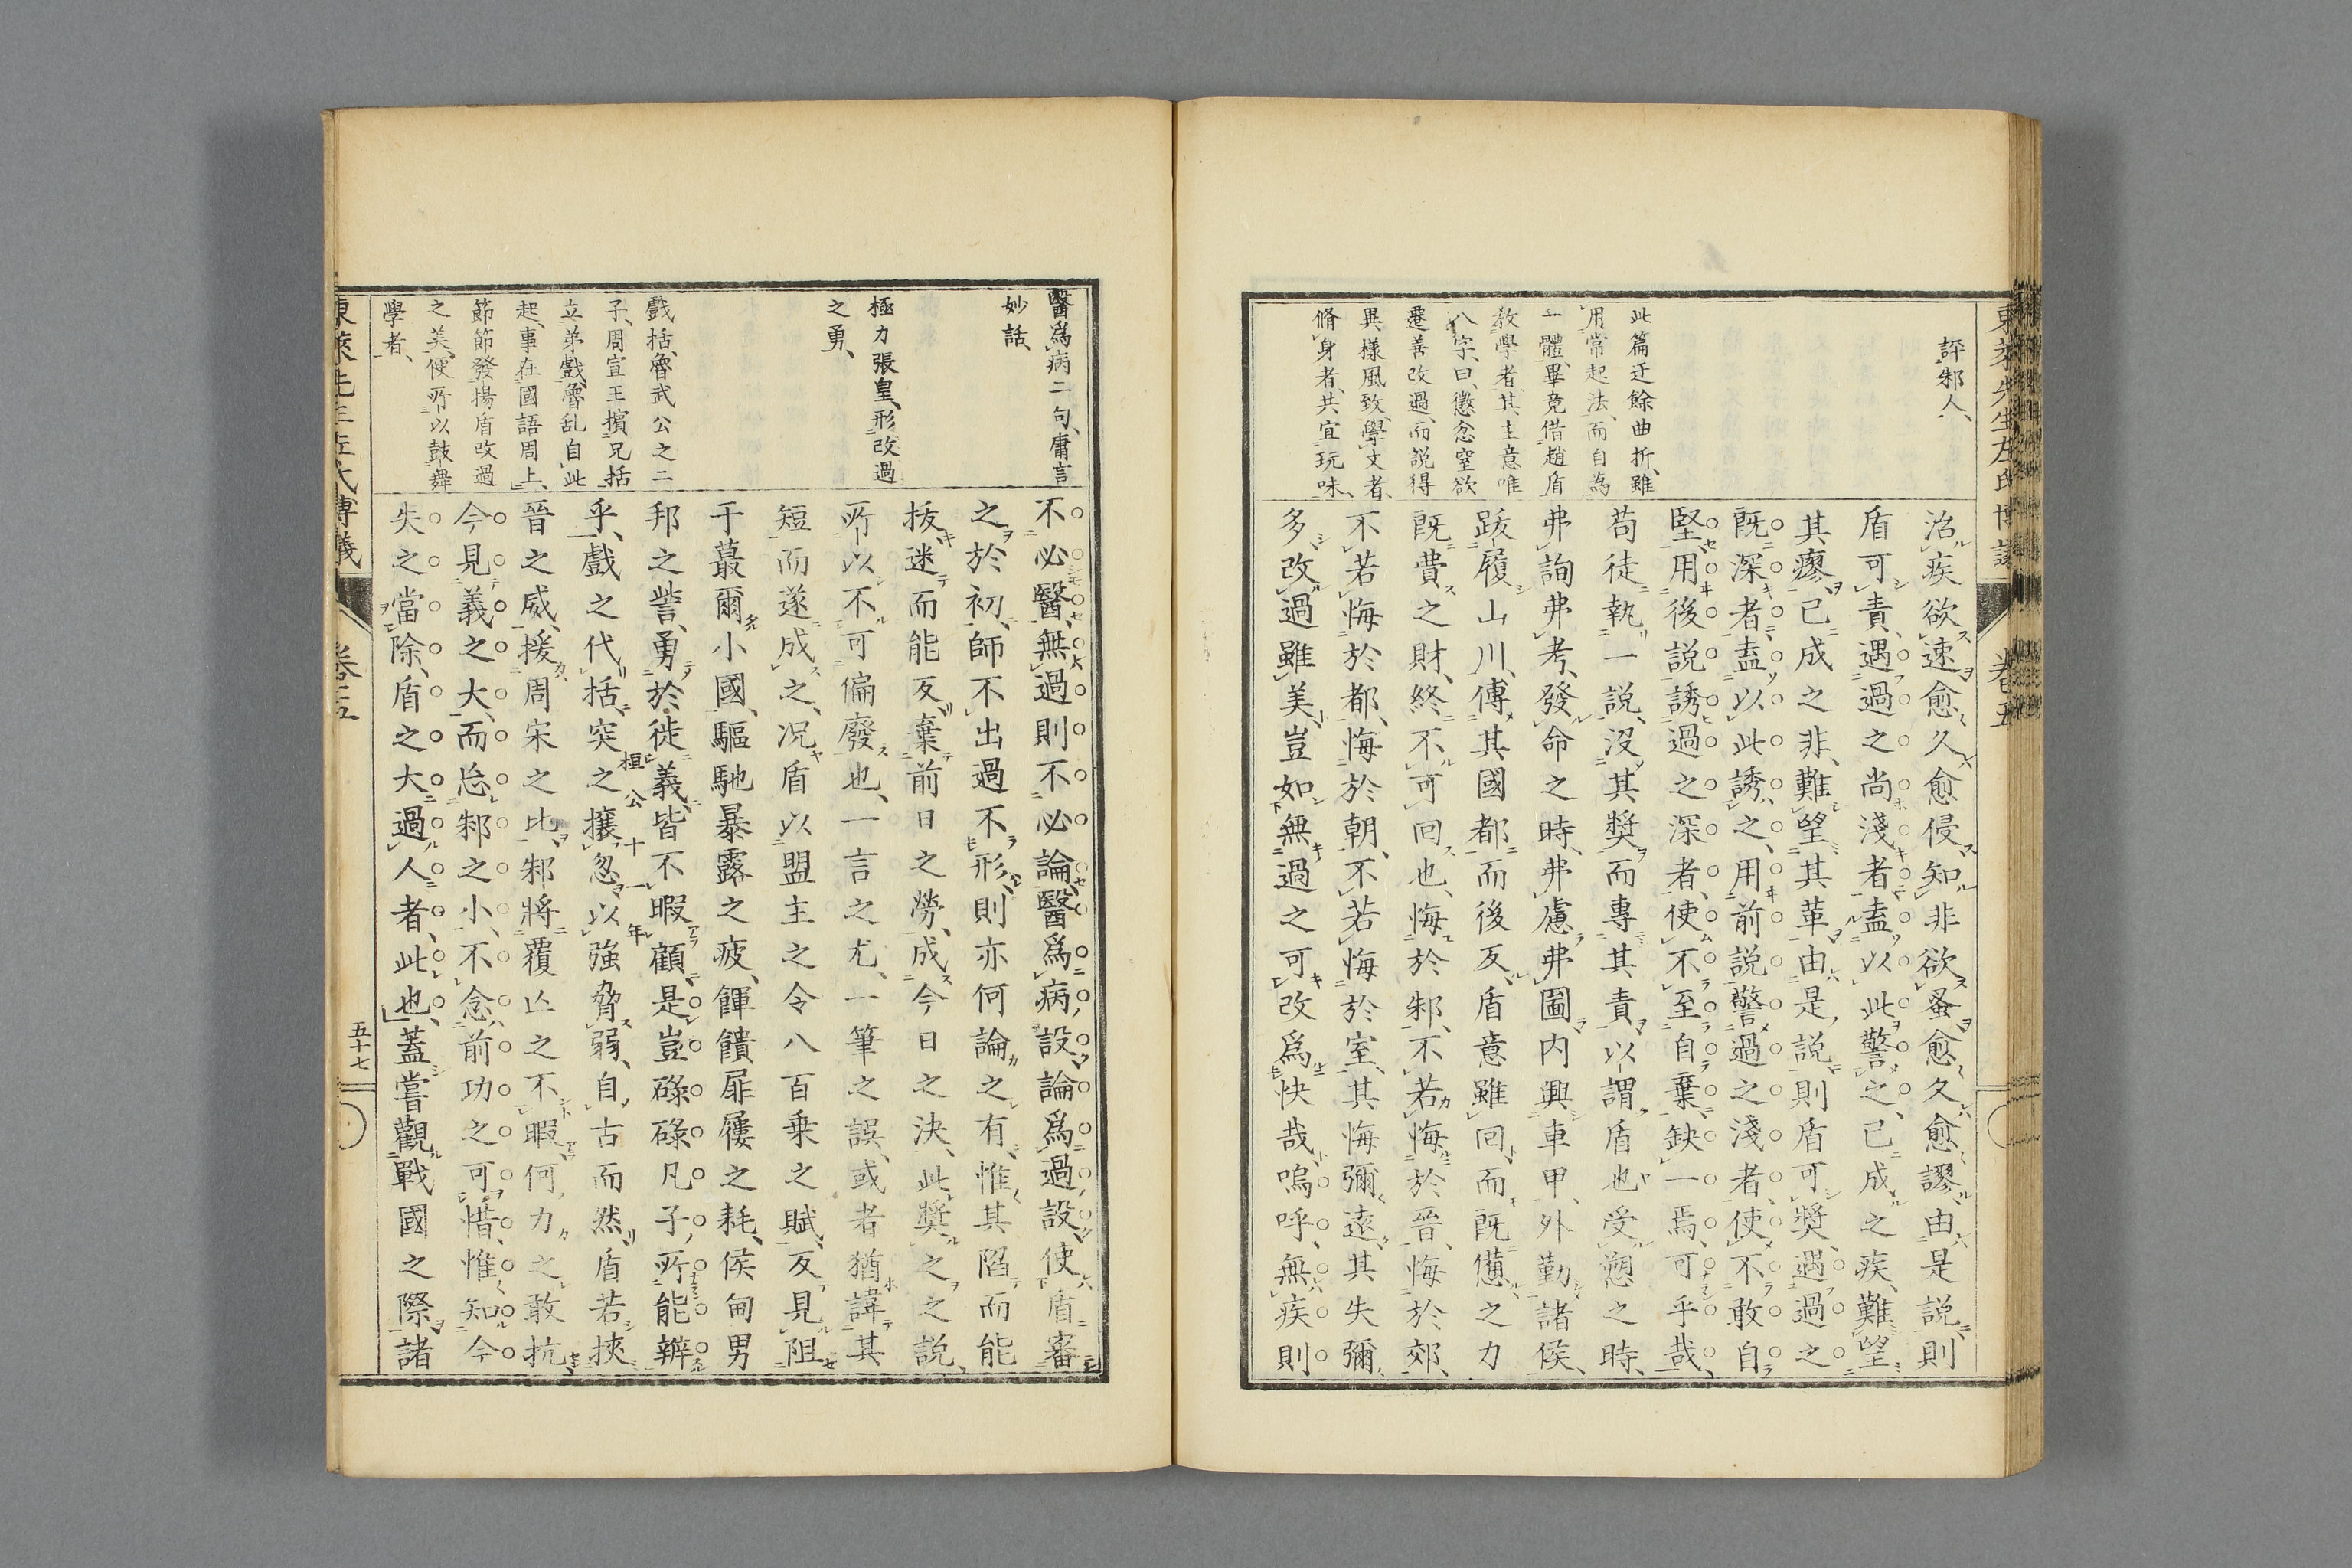 東萊先生左氏博議
卷五
評邾人、
此篇迂餘曲折、雖
用常起法、而自為
一體、畢竟借趙盾
教學者、其主意唯
八字、曰、懲忿窒欲
遷善改過、而説得
異樣風致、學文者、
脩身者、共宜玩味、
治疾欲速愈、久愈侵、知非欲蚤愈、久愈謬、由是説、則
盾可責、遇過之尚淺者、盍以此警之、已成之疾、難望
其瘳、已成之非、難望其革、由是説、則盾可奬、遇過之
既深者、盍以此誘之、用前説警過之淺者、使不敢自
堅、用後説誘過之深者、使不至自棄、缺一焉、可乎哉、
苟徒執一説、没其奬而專其責、以謂盾也受愬之時、
弗詢弗考、發命之時、弗慮弗圖、内興車甲、外勤諸侯、
跋履山川、傳其國都、而後反、盾意雖回、而既憊之力
既費之財、終不可回也、悔於邾、不若悔於晉、悔於郊、
不若悔於都、悔於朝、不若悔於室、其悔彌遠、其失彌
多、改過雖美、豈如無過之可改爲快哉、嗚呼、無疾則
醫爲病二句、庸言
妙話、
極力張皇、形改過
之勇、
戲括、魯武公之二
子、周宣王擯兄括
立弟戲、魯乱自此
起、事在國語周上、
節節發揚盾改過
之美、便所以鼓舞
學者、
不必醫、無過則不必論、醫爲病設、論爲過設、使盾審
之於初、師不出過不形、則亦何論之有、惟其陷而能
抜、迷而能反、棄前日之勞、成今日之決、此奬之之説、
所以不可偏廢也、一言之尤、一筆之誤、或者猶諱其
短而遂成之、况盾以盟主之令八百乗之賦、反見阻
于蕞爾小國、驅馳暴露之疲、餫饋扉屨之耗、侯甸男
邦之訾、勇於徙義、皆不暇顧、是豈碌碌凡子、所能辨
乎、戲之代括、突之攘忽、以強脅弱、自古而然、盾若挾
桓公十一年
晉之威、援周宋之比、邾將覆亾之不暇、何力之敢抗、
今見義之大、而忘邾之小、不念前功之可惜、惟知今
失之當除、盾之大過人者、此也、蓋嘗觀戰國之際、諸
東萊先生左氏博議
卷五
五十七